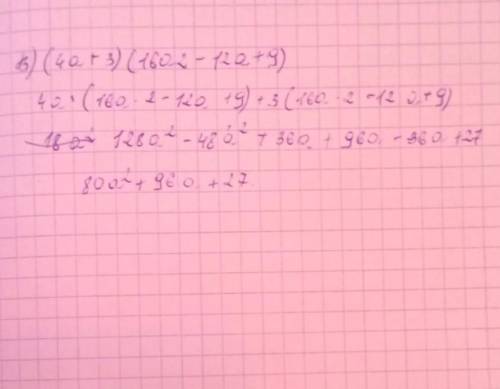 в) (4a + 3)(16a2 - 12a + 9)
4a · (16a · 2 - 12a + 9) + 3(16a · 2 - 12a + 9)
128a² - 48a² + 36a + 96a - 36a + 27
80a² + 96a + 27